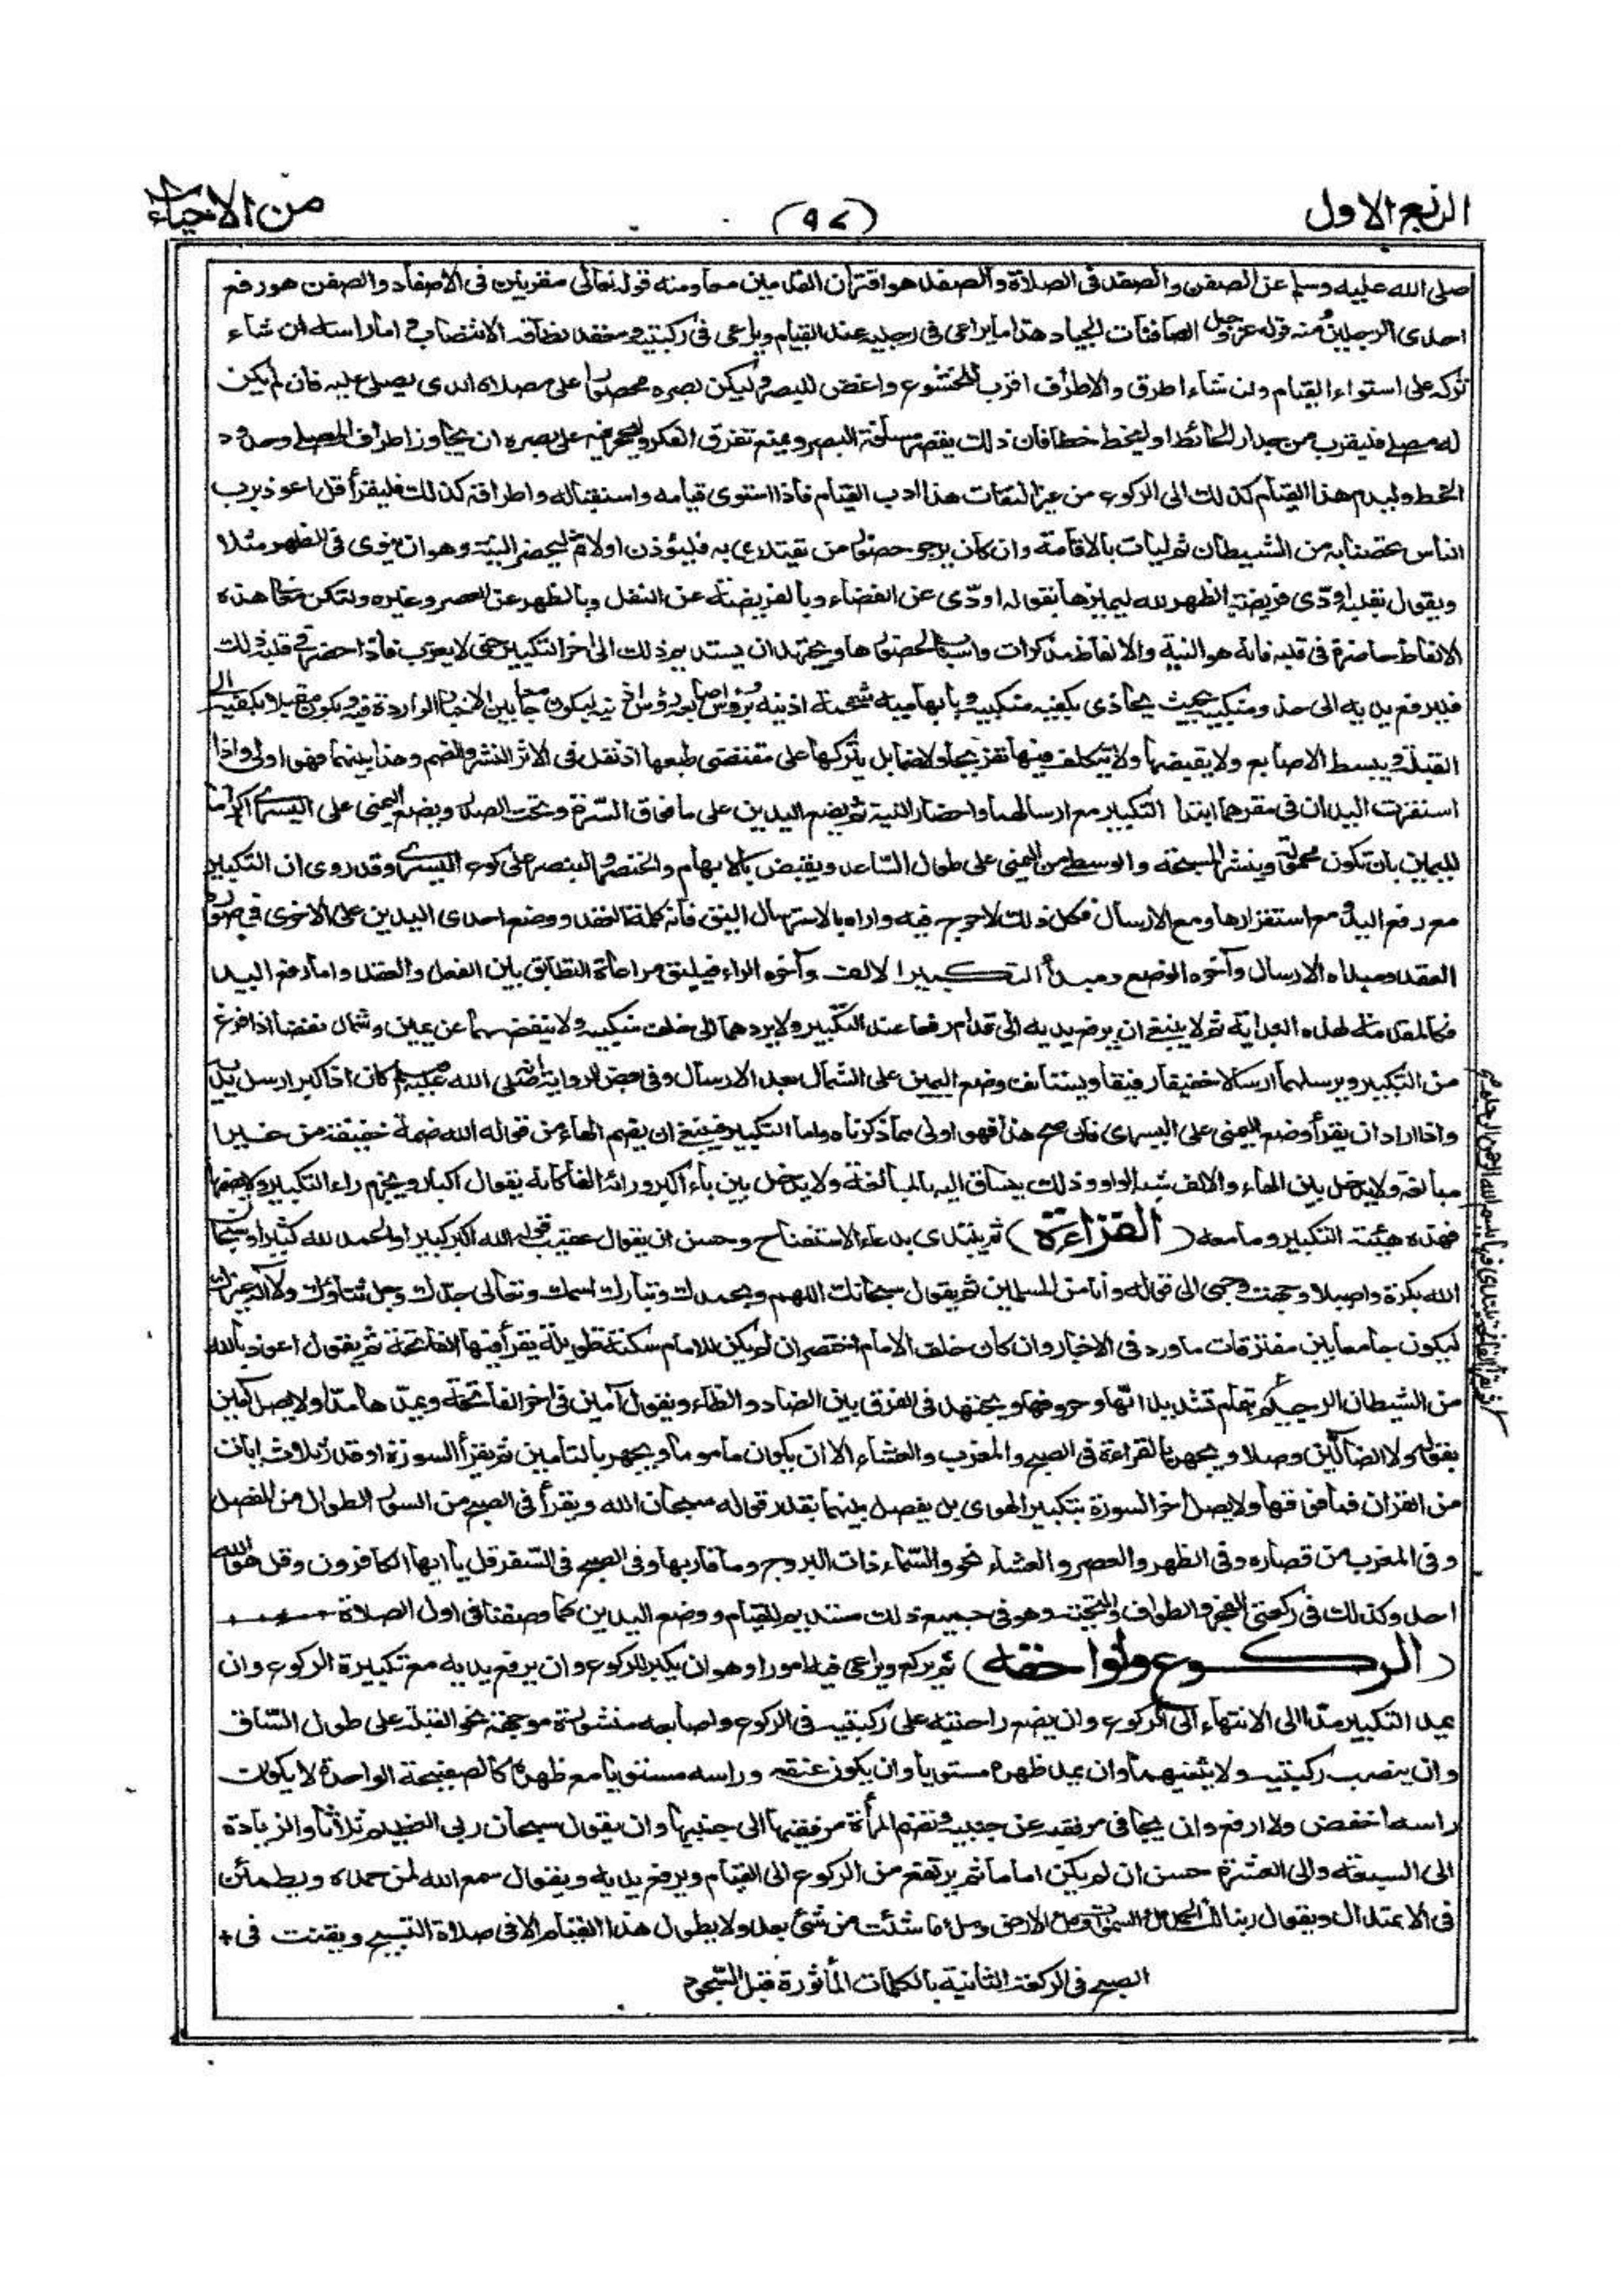 الربع الاول
(٩٧)
من الاحياء
صلى الله عليه وسلم عن الصفن والصفد فى الصلاة والصفد هو اقتران القدمين معا ومنه قوله تعالى مقرنين فى الاصفاد والصفن هو رفع
احدى الرجلين ومنه قوله عز وجل الصافنات الجياد هذا ما يراعى فى رجليه عند القيام ويراعى فى ركبتيه ومعقد نطاقه الانتصاب واما راسه ان شاء
تركه على استواء القيام وان شاء اطرق والاطراق اقرب للخشوع واغض للبصر وليكن بصره محصورا على مصلاه الذى يصلى عليه فان لم يكن
له مصلى فليقرب من جدار الحائط او ليخط خطا فان ذلك يقصر مسافة البصر ويمنع تفرق الفكر وليحجر على بصره ان يجاوز اطراف المصلى وحدود
الخط وليدم هذا القيام كذلك الى الركوع من غير التفات هذا ادب القيام فاذا استوى قيامه واستقباله واطراقه كذلك فليقرأ قل اعوذ برب
الناس تحصنا به من الشيطان ثم ليات بالاقامة وان كان يرجو حضور من يقتدى به فليؤذن اولا ثم ليحضر النية وهو ان ينوى فى الظهر مثلا
ويقول بقلبه اؤدى فريضة الظهر لله ليميزها بقوله اودى عن القضاء وبالفريضة عن النفل وبالظهر عن العصر وغيره ولتكن معانى هذه
الالفاظ حاضرة فى قلبه فانه هو النية والالفاظ مذكرات واسباب لحضورها ويجتهد ان يستديم ذلك الى اخر التكبير حتى لا يعزب فاذا حضر فى قلبه ذلك
فليرفع يديه الى حذو منكبيه بحيث يحاذى بكفيه منكبيه وبابهاميه شحمة اذنيه وبرؤس اصابعه رؤس اذنيه ليكون جامعا بين الاخبار الواردة فيه ويكون مقبلا بكفيه الى
القبلة ويبسط الاصابع ولا يقبضها ولا يتكلف فيها تفريجا ولا ضما بل يتركها على مقتضى طبعها اذ نقل فى الاثر النشر والضم وهذا بينهما فهو اولى واذا
استقرت اليدان فى مقرهما ابتدأ التكبير مع ارسالهما واحضار النية ثم يضع اليدين على ما فوق السرة وتحت الصدر ويضع اليمنى على اليسرى اكراما
لليمين بان تكون محمولة وينشر المسبحة والوسطى من اليمنى على طول الساعد ويقبض بالابهام والخنصر والبنصر على كوع اليسرى وقد روى ان التكبير
مع رفع اليد ومع استقرارها ومع الارسال فكل ذلك لا حرج فيه واراه بالارسال اليق فانه كلمة العقد ووضع احدى اليدين على الاخرى فى صورة
العقد ومبداه الارسال وآخره الوضع ومبدأ التكبير الالف وآخره الراء فيليق مراعاة التطابق بين الفعل والعقد واما رفع اليد
فكالمقدمة لهذه البداية ثم لا ينبغى ان يرفع يديه الى قدام رفعا عند التكبير ولا يردهما الى خلف منكبيه ولا ينفضهما عن يمين وشمال نفضا اذا فرغ
من التكبير ويرسلهما ارسالا خفيفا رفيقا ويستانف وضع اليمين على الشمال بعد الارسال وفى بعض الروايات انه صلى الله عليه وسلم كان اذا كبر ارسل يديه
واذا اراد ان يقرأ وضع اليمنى على اليسرى فان صح هذا فهو اولى مما ذكرناه واما التكبير فينبغى ان يضم الهاء من قوله الله ضمة خفيفة من غير
مبالغة ولا يدخل بين الهاء والالف شبه الواو وذلك ينساق اليه بالمبالغة ولا يدخل بين باء اكبر ورائه الفا كانه يقول اكبار ويجزم راء التكبير ولا يضمها
فهذه هيئة التكبير وما معه (القراءة) ثم يبتدى بدعاء الاستفتاح وحسن ان يقول عقيب قوله الله اكبر كبيرا والحمد لله كثيرا وسبحان
الله بكرة واصيلا وجهت وجهى الى قوله وانا من المسلمين ثم يقول سبحانك اللهم وبحمدك وتبارك اسمك وتعالى جدك وجل ثناؤك ولا اله غيرك
ليكون جامعا بين متفرقات ما ورد فى الاخبار وان كان خلف الامام اختصر ان لم يكن للامام سكتة طويلة يقرأ فيها الفاتحة ثم يقول اعوذ بالله
من الشيطان الرجيم بتمام تشديداتها وحروفها ويجتهد فى الفرق بين الضاد والظاء ويقول آمين فى اخر الفاتحة ويمدها مدا ولا يصل آمين
بقوله ولا الضالين وصلا ويجهر بالقراءة فى الصبح والمغرب والعشاء الا ان يكون ماموما ويجهر بالتامين ثم يقرأ السورة او قدر ثلاث ايات
من القران فما فوقها ولا يصل اخر السورة بتكبير الهوى بل يفصل بينهما بقدر قوله سبحان الله ويقرأ فى الصبح من السور الطوال من المفصل
وفى المغرب من قصاره وفى الظهر والعصر والعشاء نحو والسماء ذات البروج وما قاربها وفى الصبح فى السفر قل يا ايها الكافرون وقل هو الله
احد وكذلك فى ركعتى الفجر والطواف والتحية وهو فى جميع ذلك مستديم للقيام ووضع اليدين كما وصفنا فى اول الصلاة
(الركوع ولواحقه) ثم يركع ويراعى فيه امورا وهو ان يكبر للركوع وان يرفع يديه مع تكبيرة الركوع وان
يمد التكبير مدا الى الانتهاء الى الركوع وان يضع راحتيه على ركبتيه فى الركوع واصابعه منشورة موجهة نحو القبلة على طول الساق
وان ينصب ركبتيه ولا يثنيهما وان يمد ظهره مستويا وان يكون عنقه وراسه مستويا مع ظهره كالصفيحة الواحدة لا يكون
راسه اخفض ولا ارفع وان يجافى مرفقيه عن جنبيه وتضم المرأة مرفقيها الى جنبيها وان يقول سبحان ربى العظيم ثلاثا والزيادة
الى السبعة والى العشرة حسن ان لم يكن اماما ثم يرتفع من الركوع الى القيام ويرفع يديه ويقول سمع الله لمن حمده ويطمئن
فى الاعتدال ويقول ربنا لك الحمد ملأ السموات وملأ الارض وملأ ما شئت من شئ بعد ولا يطول هذا القيام الا فى صلاة التسبيح ويقنت فى
الصبح فى الركعة الثانية بالكلمات المأثورة قبل السجود
بسم الله الرحمن الرحيم